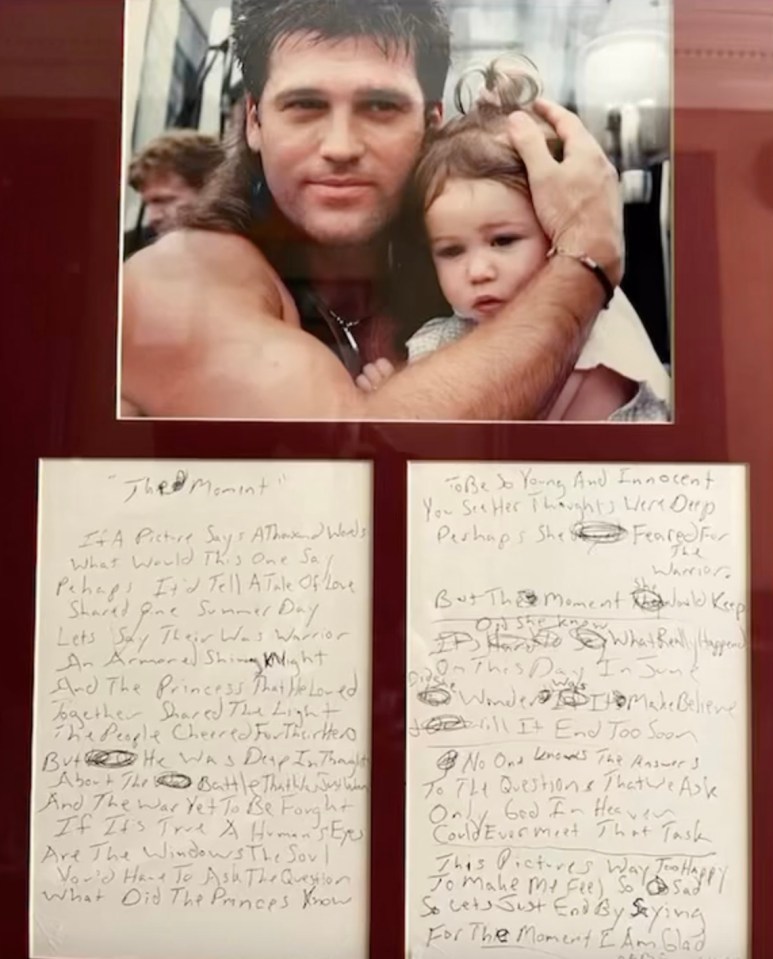 "The Moment"
If A Picture Says A Thousand Words
What Would This One Say
Pehaps It'd Tell A Tale Of Love
Shared One Summer Day
Lets Say Their Was Warrior
An Armored Shining Knight
And The Princess That He Loved
Together Shared The Light
The People Cheered For Their Hero
But He Was Deep In Thought
About The Battle That He Just Won
And The War Yet To Be Forght
If It's True A Human's Eyes
Are The Windows The Soul
You'd Have To Ask The Question
What Did The Princes Know
To Be So Young And Innocent
You See Her Thoughts Were Deep
Perhaps She Feared For
The
Warrior.
But The Moment She Would Keep
Did She Know
What Really Happened
On This Day In June
Did she Wonder Was It Make Believe
Will It End Too Soon
No One knows The Answers
To The Questions That We Ask
Only God In Heaven
Could Ever meet That Task
This Pictures Way Too Happy
To Make Me Feel So Sad
So Lets Just End By Saying
For The Moment I Am Glad